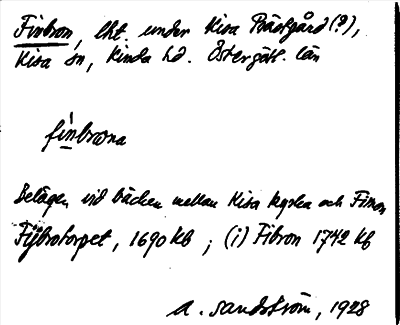 Finbron, lht. under Kisa Prästgård (?),
Kisa sn, Kinda hd. Östergötl. län
finbrona
Belägen vid bäcken mellan Kisa kyrka och
Fijbrotorpet, 1690 Kb ; (i) Fibron 1742 Kb
A. Sandström, 1928